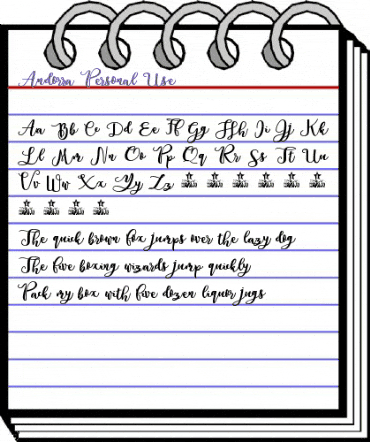 Andorra Personal Use
Aa Bb Cc Dd Ee Ff Gg Hh Ii Jj Kk
Ll Mm Nn Oo Pp Qq Rr Ss Tt Uu
Vv Ww Xx Yy Zz
The quick brown fox jumps over the lazy dog
The five boxing wizards jump quickly
Pack my box with five dozen liquor jugs